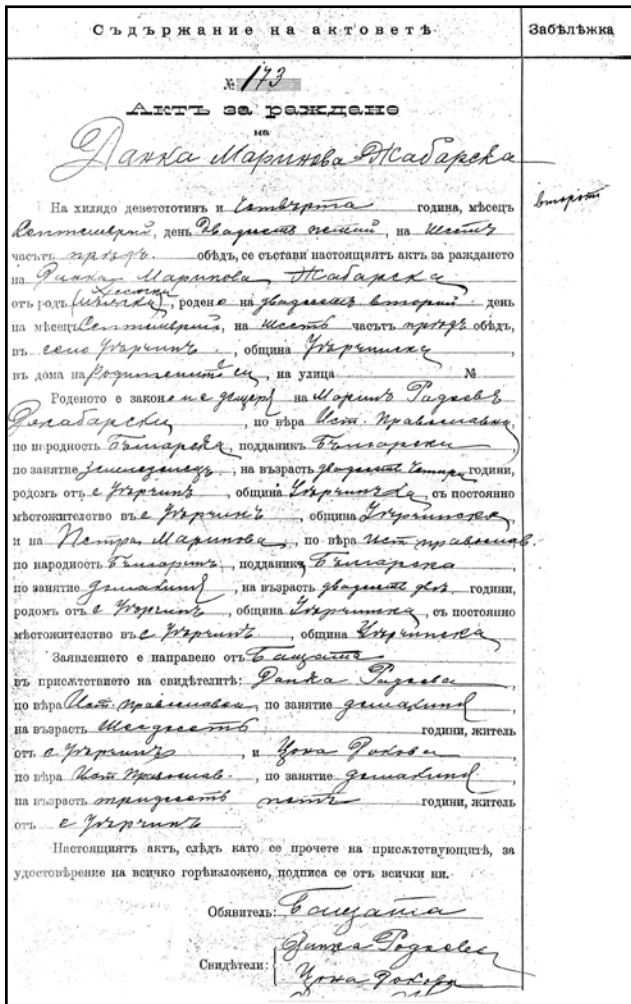 Съдържание на актоветѣ Забѣлѣжка
№ 173
Актъ за раждане
на
Данка Маринова Жабарска
На хилядо деветстотинъ и Четвърта година, мѣсецъ
Септемврий, день Двадесетъ петий, на шестъ
часътъ предъ обѣдъ, се състави настоящиятъ актъ за раждането
на Данка Маринова Жабарска
отъ родъ женски, родено на двадесетъ вторий день
на мѣсецъ Септемврий, на шестъ часътъ предъ обѣдъ,
въ село Угърчинъ, община Угърчинска,
въ дома на Родителитѣ си, на улица №
Роденото е законна дъщеря на Маринъ Радковъ
по вѣра Ист. Православна,
по народность Българска, подданикъ Български,
по занятие земледѣлецъ, на възрасть двадесетъ Четири години,
родомъ отъ с Угърчинъ, община Угърчинска, съ постоянно
мѣстожителство въ с Угърчинъ, община Угърчинска,
и на Петра Маринова, по вѣра ист православ.
по народность Българинъ, подданикъ Българска,
по занятие домакиня, на възрасть двадесетъ двѣ години,
родомъ отъ с Угърчинъ, община Угърчинска, съ постоянно
мѣстожителство въ с Угърчинъ, община Угърчинска
Заявлението е направено отъ Бащата
въ присѫтствието на свидѣтелитѣ: Данка Радкова,
по вѣра Ист. православна, по занятие домакиня,
на възрасть Шестдесетъ години, жителъ
отъ с Угърчинъ, и Цона Рокова
по вѣра Ист Православ., по занятие домакиня,
на възрасть тридесетъ петъ години, жителъ
отъ с Угърчинъ
Настоящиятъ актъ, слѣдъ като се прочете на присѫтствующитѣ, за
удостовѣрение на всичко горѣизложено, подписа се отъ всички ни.
Обявитель: Бащата
Свидѣтели: Данка Радкова
Цона Рокова